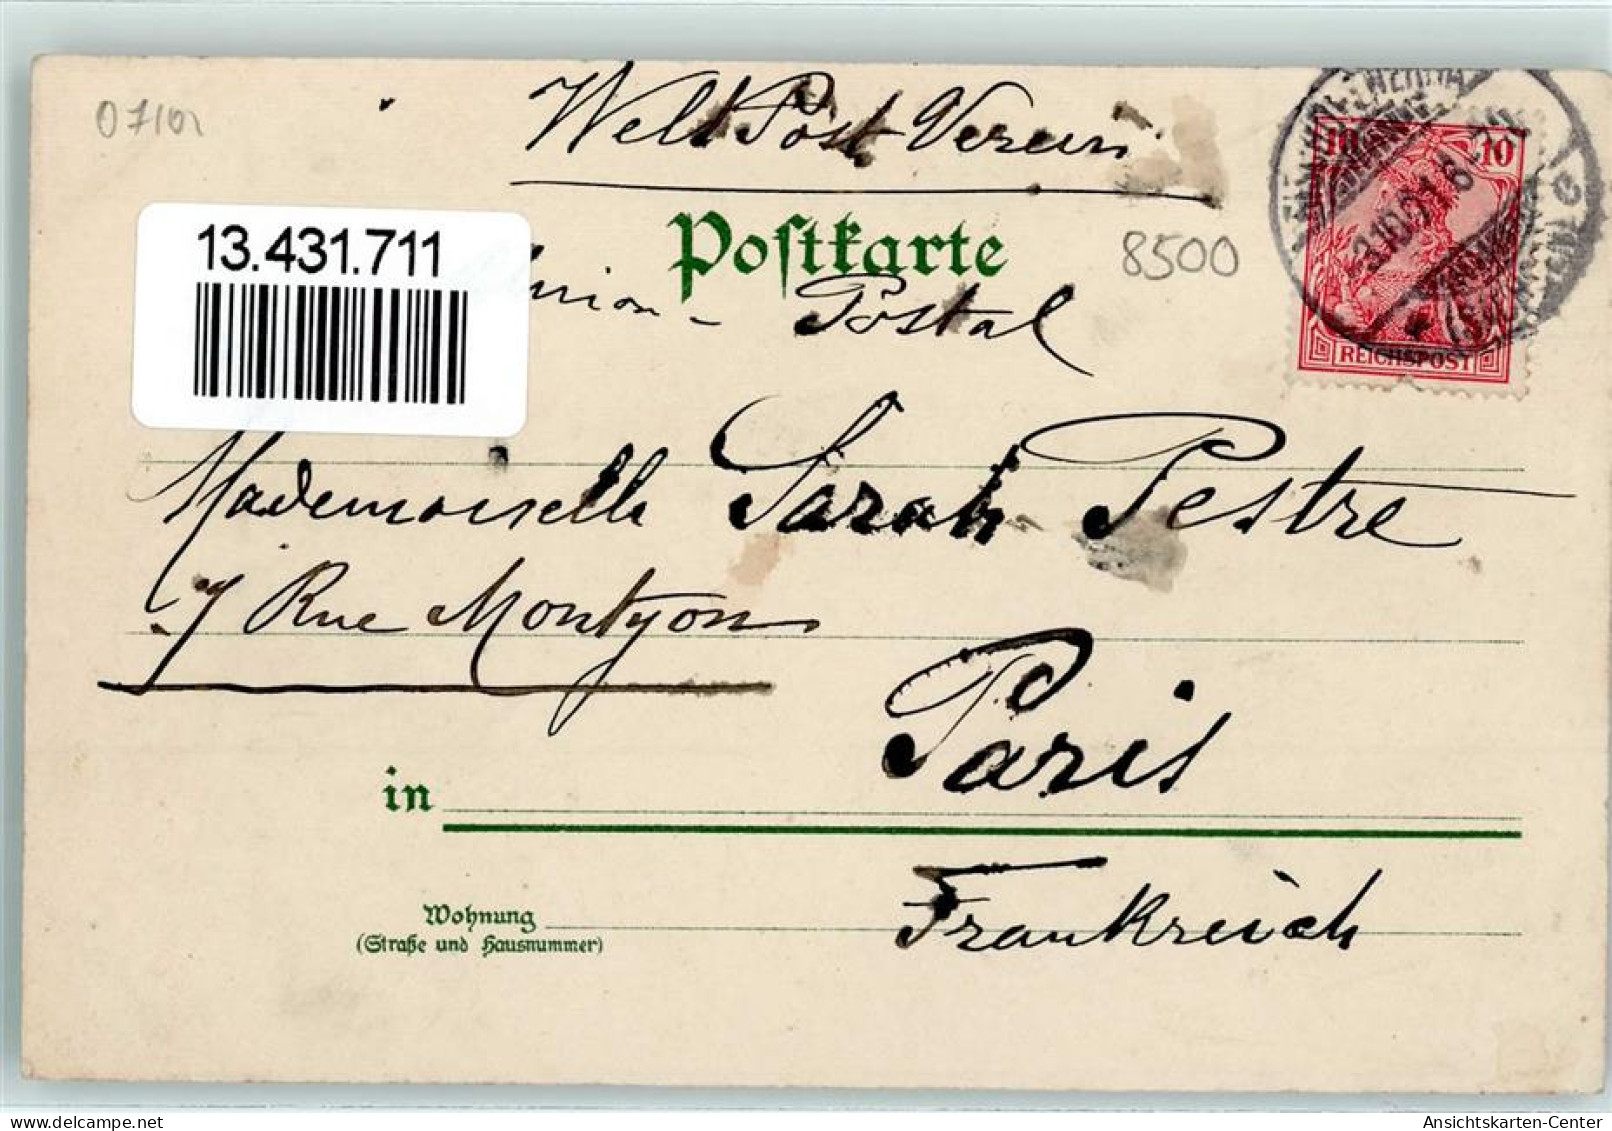 07101
Welt Post Verein
10 10
13.431.711
Postkarte
8500
Union - Postal
REICHSPOST
Mademoiselle Sarah Pestre
7 Rue Montyon
Paris
in
Frankreich
Wohnung
(Straße und Hausnummer)
www.oldthing.de
Ansichtskarten-Center